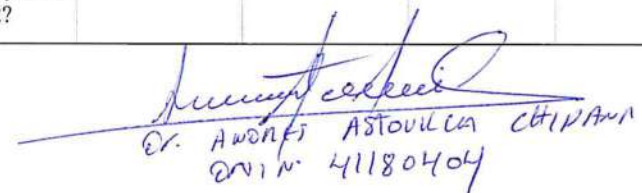 ?
Dr. ANDRÉS ASTOUILCA CHIPANA
DNI N° 41180404